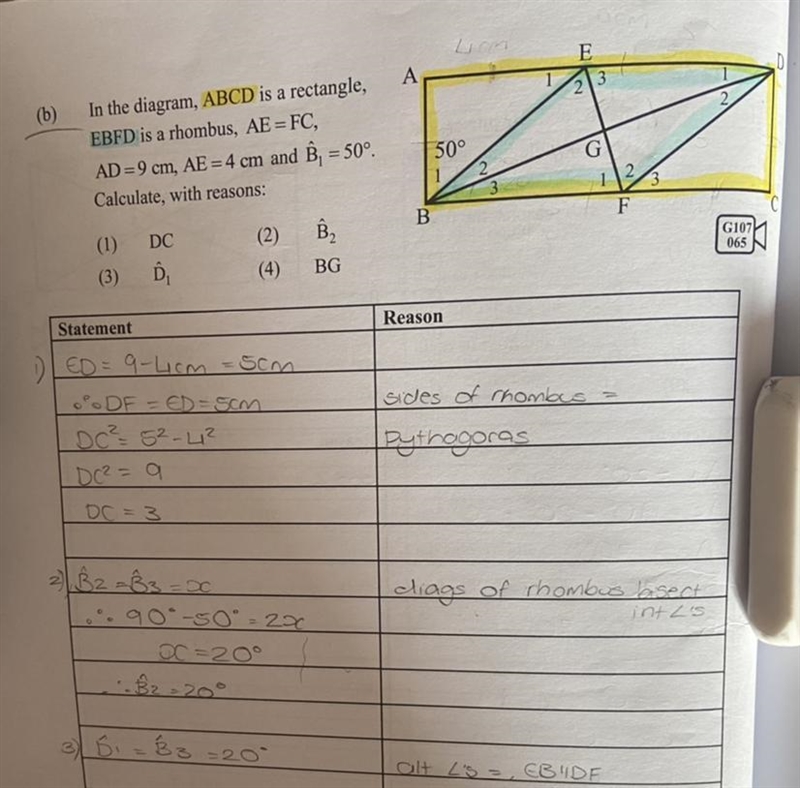 4cm
(b) In the diagram, ABCD is a rectangle,
EBFD is a rhombus, AE = FC,
AD = 9 cm, AE = 4 cm and B̂₁ = 50°.
Calculate, with reasons:
(1) DC (2) B̂₂
(3) D̂₁ (4) BG
A E D
1 2 3 1
2
50° G
1 2 3 1 2 3
B F C
G107
065
Statement Reason
1) ED = 9-4cm = 5cm
∴ DF = ED = 5cm sides of rhombus =
DC² = 5² - 4² Pythagoras
DC² = 9
DC = 3
2) B̂2 = B̂3 = x diags of rhombus bisect
int ∠'s
∴ 90° - 50° = 2x
x = 20°
∴ B̂2 = 20°
3) D̂1 = B̂3 = 20° alt ∠'s =, EB//DF